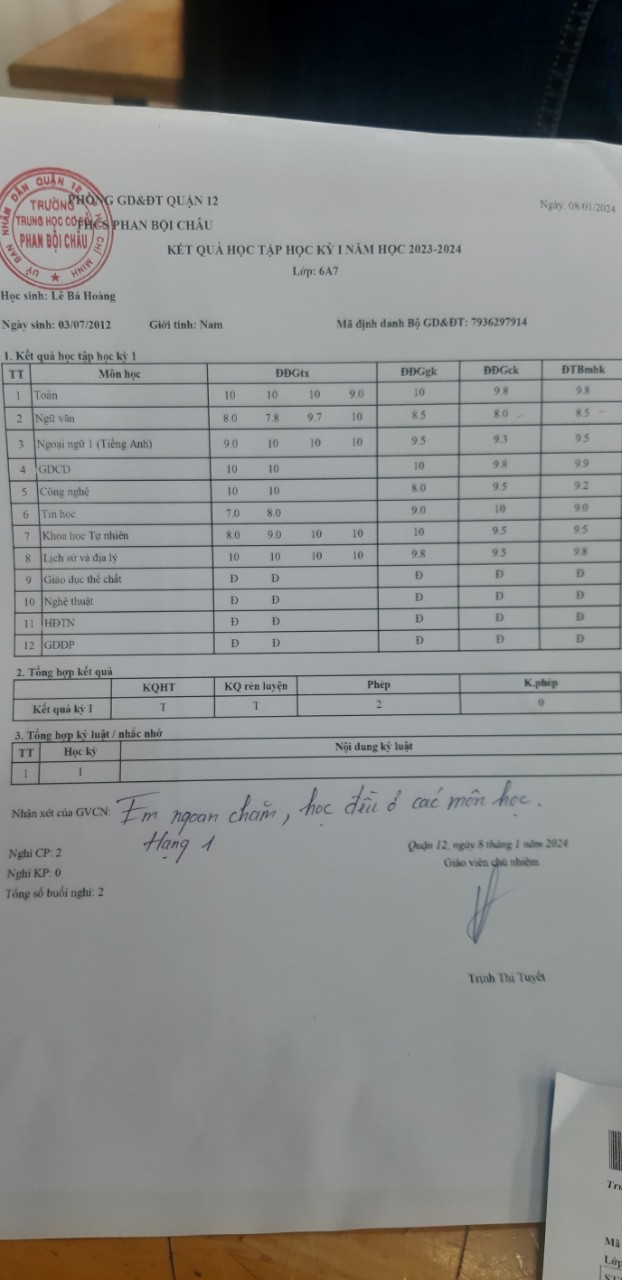 PHÒNG GD&ĐT QUẬN 12
Ngày. 08/01/2024
THCS PHAN BỘI CHÂU
ỦY BAN NHÂN DÂN QUẬN 12 HỒ CHÍ MINH
TRƯỜNG
TRUNG HỌC CƠ SỞ
PHAN BỘI CHÂU
KẾT QUẢ HỌC TẬP HỌC KỲ I NĂM HỌC 2023-2024
Lớp: 6A7
Học sinh: Lê Bá Hoàng
Ngày sinh: 03/07/2012 Giới tính: Nam Mã định danh Bộ GD&ĐT: 7936297914
1. Kết quả học tập học kỳ 1
TT Môn học ĐĐGtx ĐĐGgk ĐĐGck ĐTBmhk
1 Toán 10 10 10 9.0 10 9.8 9.8
2 Ngữ văn 8.0 7.8 9.7 10 8.5 8.0 8.5
3 Ngoại ngữ 1 (Tiếng Anh) 9.0 10 10 10 9.5 9.3 9.5
4 GDCD 10 10 10 9.8 9.9
5 Công nghệ 10 10 8.0 9.5 9.2
6 Tin học 7.0 8.0 9.0 10 9.0
7 Khoa học Tự nhiên 8.0 9.0 10 10 10 9.5 9.5
8 Lịch sử và địa lý 10 10 10 10 9.8 9.5 9.8
9 Giáo dục thể chất Đ Đ Đ Đ Đ
10 Nghệ thuật Đ Đ Đ Đ Đ
11 HĐTN Đ Đ Đ Đ Đ
12 GDĐP Đ Đ Đ Đ Đ
2. Tổng hợp kết quả
KQHT KQ rèn luyện Phép K.phép
Kết quả kỳ I T T 2 0
3. Tổng hợp kỷ luật / nhắc nhở
TT Học kỳ Nội dung kỷ luật
1 I
Nhận xét của GVCN: Em ngoan chăm, học đều ở các môn học.
Hạng 1
Nghỉ CP: 2
Nghỉ KP: 0
Tổng số buổi nghỉ: 2
Quận 12, ngày 8 tháng 1 năm 2024
Giáo viên chủ nhiệm
Trịnh Thị Tuyết
Mã
Lớp